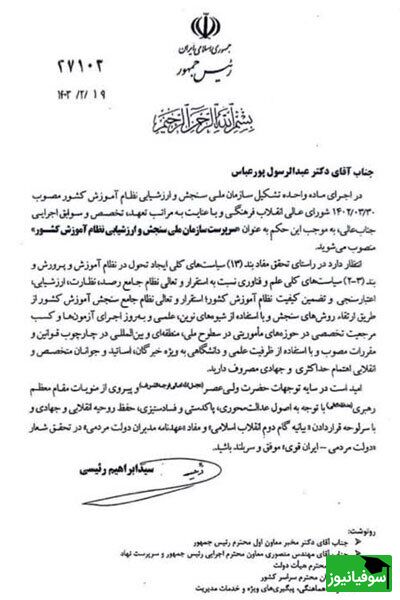 جمهوری اسلامی ایران
رئیس جمهور
۲۷۱۰۲
۱۴۰۳/۲/۱۹
بسم الله الرحمن الرحیم
جناب آقای دکتر عبدالرسول پورعباس
در اجرای ماده واحده تشکیل سازمان ملی سنجش و ارزشیابی نظام آموزش کشور مصوب
۱۴۰۲/۰۳/۳۰ شورای عالی انقلاب فرهنگی و با عنایت به مراتب تعهد، تخصص و سوابق اجرایی
جناب‌عالی، به موجب این حکم به عنوان «سرپرست سازمان ملی سنجش و ارزشیابی نظام آموزش کشور»
منصوب می‌شوید.
انتظار دارد در راستای تحقق مفاد بند (۱۳) سیاست‌های کلی ایجاد تحول در نظام آموزش و پرورش و
بند (۳-۲) سیاست‌های کلی علم و فناوری نسبت به استقرار و تعالی نظام جامع رصد، نظارت، ارزشیابی،
اعتبارسنجی و تضمین کیفیت نظام آموزش کشور؛ استقرار و تعالی نظام جامع سنجش آموزش کشور از
طریق ارتقاء روش‌های سنجش و با استفاده از شیوه‌های نوین، علمی و به‌روز اجرای آزمون‌ها و کسب
مرجعیت تخصصی در حوزه‌های مأموریتی در سطوح ملی، منطقه‌ای و بین‌المللی در چارچوب قوانین و
مقررات مصوب و با استفاده از ظرفیت علمی و دانشگاهی به ویژه خبرگان، اساتید و جوانان متخصص و
انقلابی اهتمام حداکثری و جهادی مصروف دارید.
امید است در سایه توجهات حضرت ولی‌عصر و پیروی از منویات مقام معظم
رهبری (مدظله‌العالی) با توجه به اصول عدالت‌محوری، پاکدستی و فسادستیزی، حفظ روحیه انقلابی و جهادی و
با سرلوحه قراردادن «بیانیه گام دوم انقلاب اسلامی» و مفاد «عهدنامه مدیران دولت مردمی» در تحقق شعار
«دولت مردمی – ایران قوی» موفق و سربلند باشید.
سیدابراهیم رئیسی
رونوشت:
جناب آقای دکتر مخبر معاون اول محترم رئیس جمهور
جناب آقای مهندس منصوری معاون محترم اجرایی رئیس جمهور و سرپرست نهاد
محترم هیأت دولت
ان محترم سراسر کشور
هماهنگی، پیگیری‌های ویژه و خدمات مدیریت
سوفیانیوز